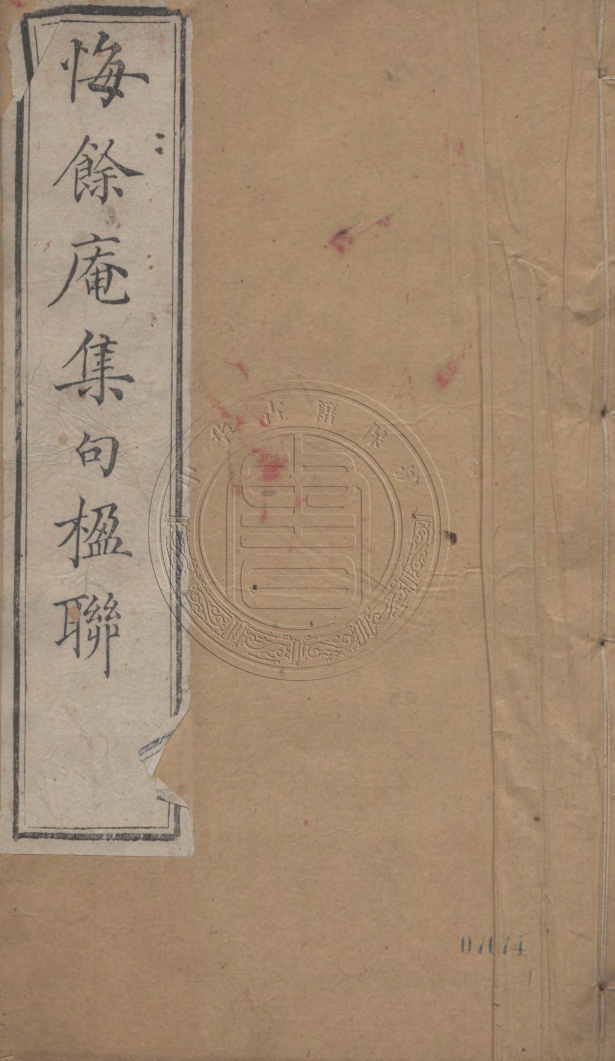 悔餘庵集句楹聯
07074